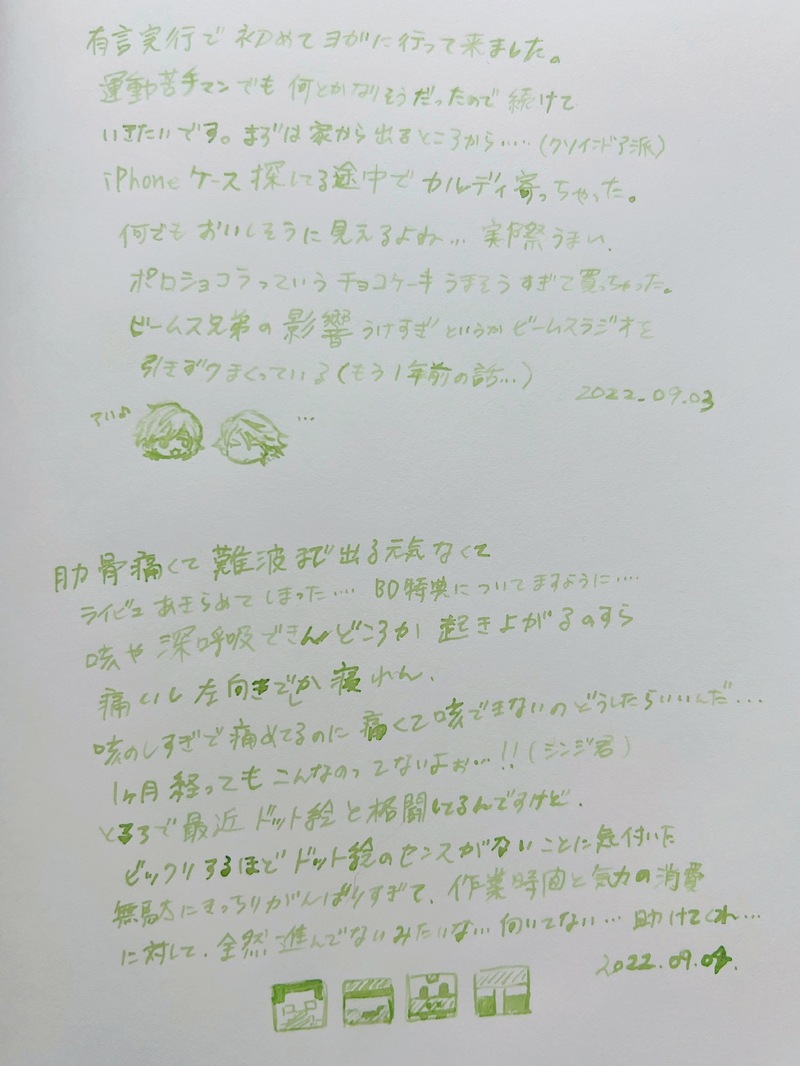 有言実行で初めてヨガに行って来ました。
運動苦手マンでも何とかなりそうだったので続けて
いきたいです。まずは家から出るところから……(クソインドア派)
iPhoneケース探してる途中でカルディ寄っちゃった。
何でもおいしそうに見えるよね… 実際うまい。
ポロショコラっていうチョコケーキうまそうすぎて買っちゃった。
ビームス兄弟の影響うけすぎというかビームスラジオを
引きずりまくっている(もう1年前の話…)
2022.09.03
…
肋骨痛くて難波まで出る元気なくて
ライビュあきらめてしまった…. BD特典についてますように….
咳や深呼吸できんどころか起きよがるのすら
痛いし左向きでしか寝れん.
咳のしすぎで痛めてるのに痛くて咳できないのどうしたらいいんだ…
1ヶ月経ってもこんなのってないよぉ…!!(シンジ君)
ところで最近ドット絵と格闘してるんですけど.
ビックリするほどドット絵のセンスがないことに気付いた
無駄にきっちりがんばりすぎて、作業時間と気力の消費
に対して、全然進んでないみたいな… 向いてない… 助けてくれ…
2022.09.09.